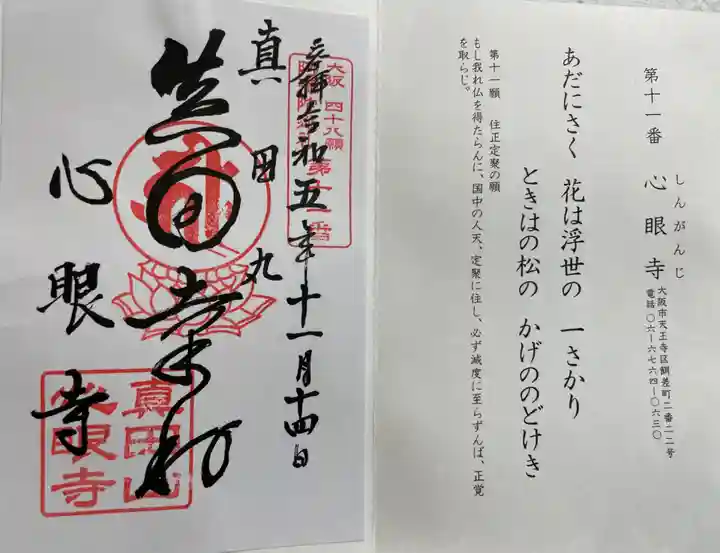 第十一番 心眼寺
しんがんじ
大阪市天王寺区餌差町二番二二号
電話〇六ー六七六四ー〇六三〇
あだにさく 花は浮世の 一さかり
ときはの松の かげののどけき
第十一願 住正定聚の願
もし我れ仏を得たらんに、国中の人天、定聚に住し、必ず滅度に至らずんば、正覚
を取らじ。
大阪 四十八願
第十一番
奉拝 令和五年十一月十四日
真田丸
心眼寺
真田山
心眼寺